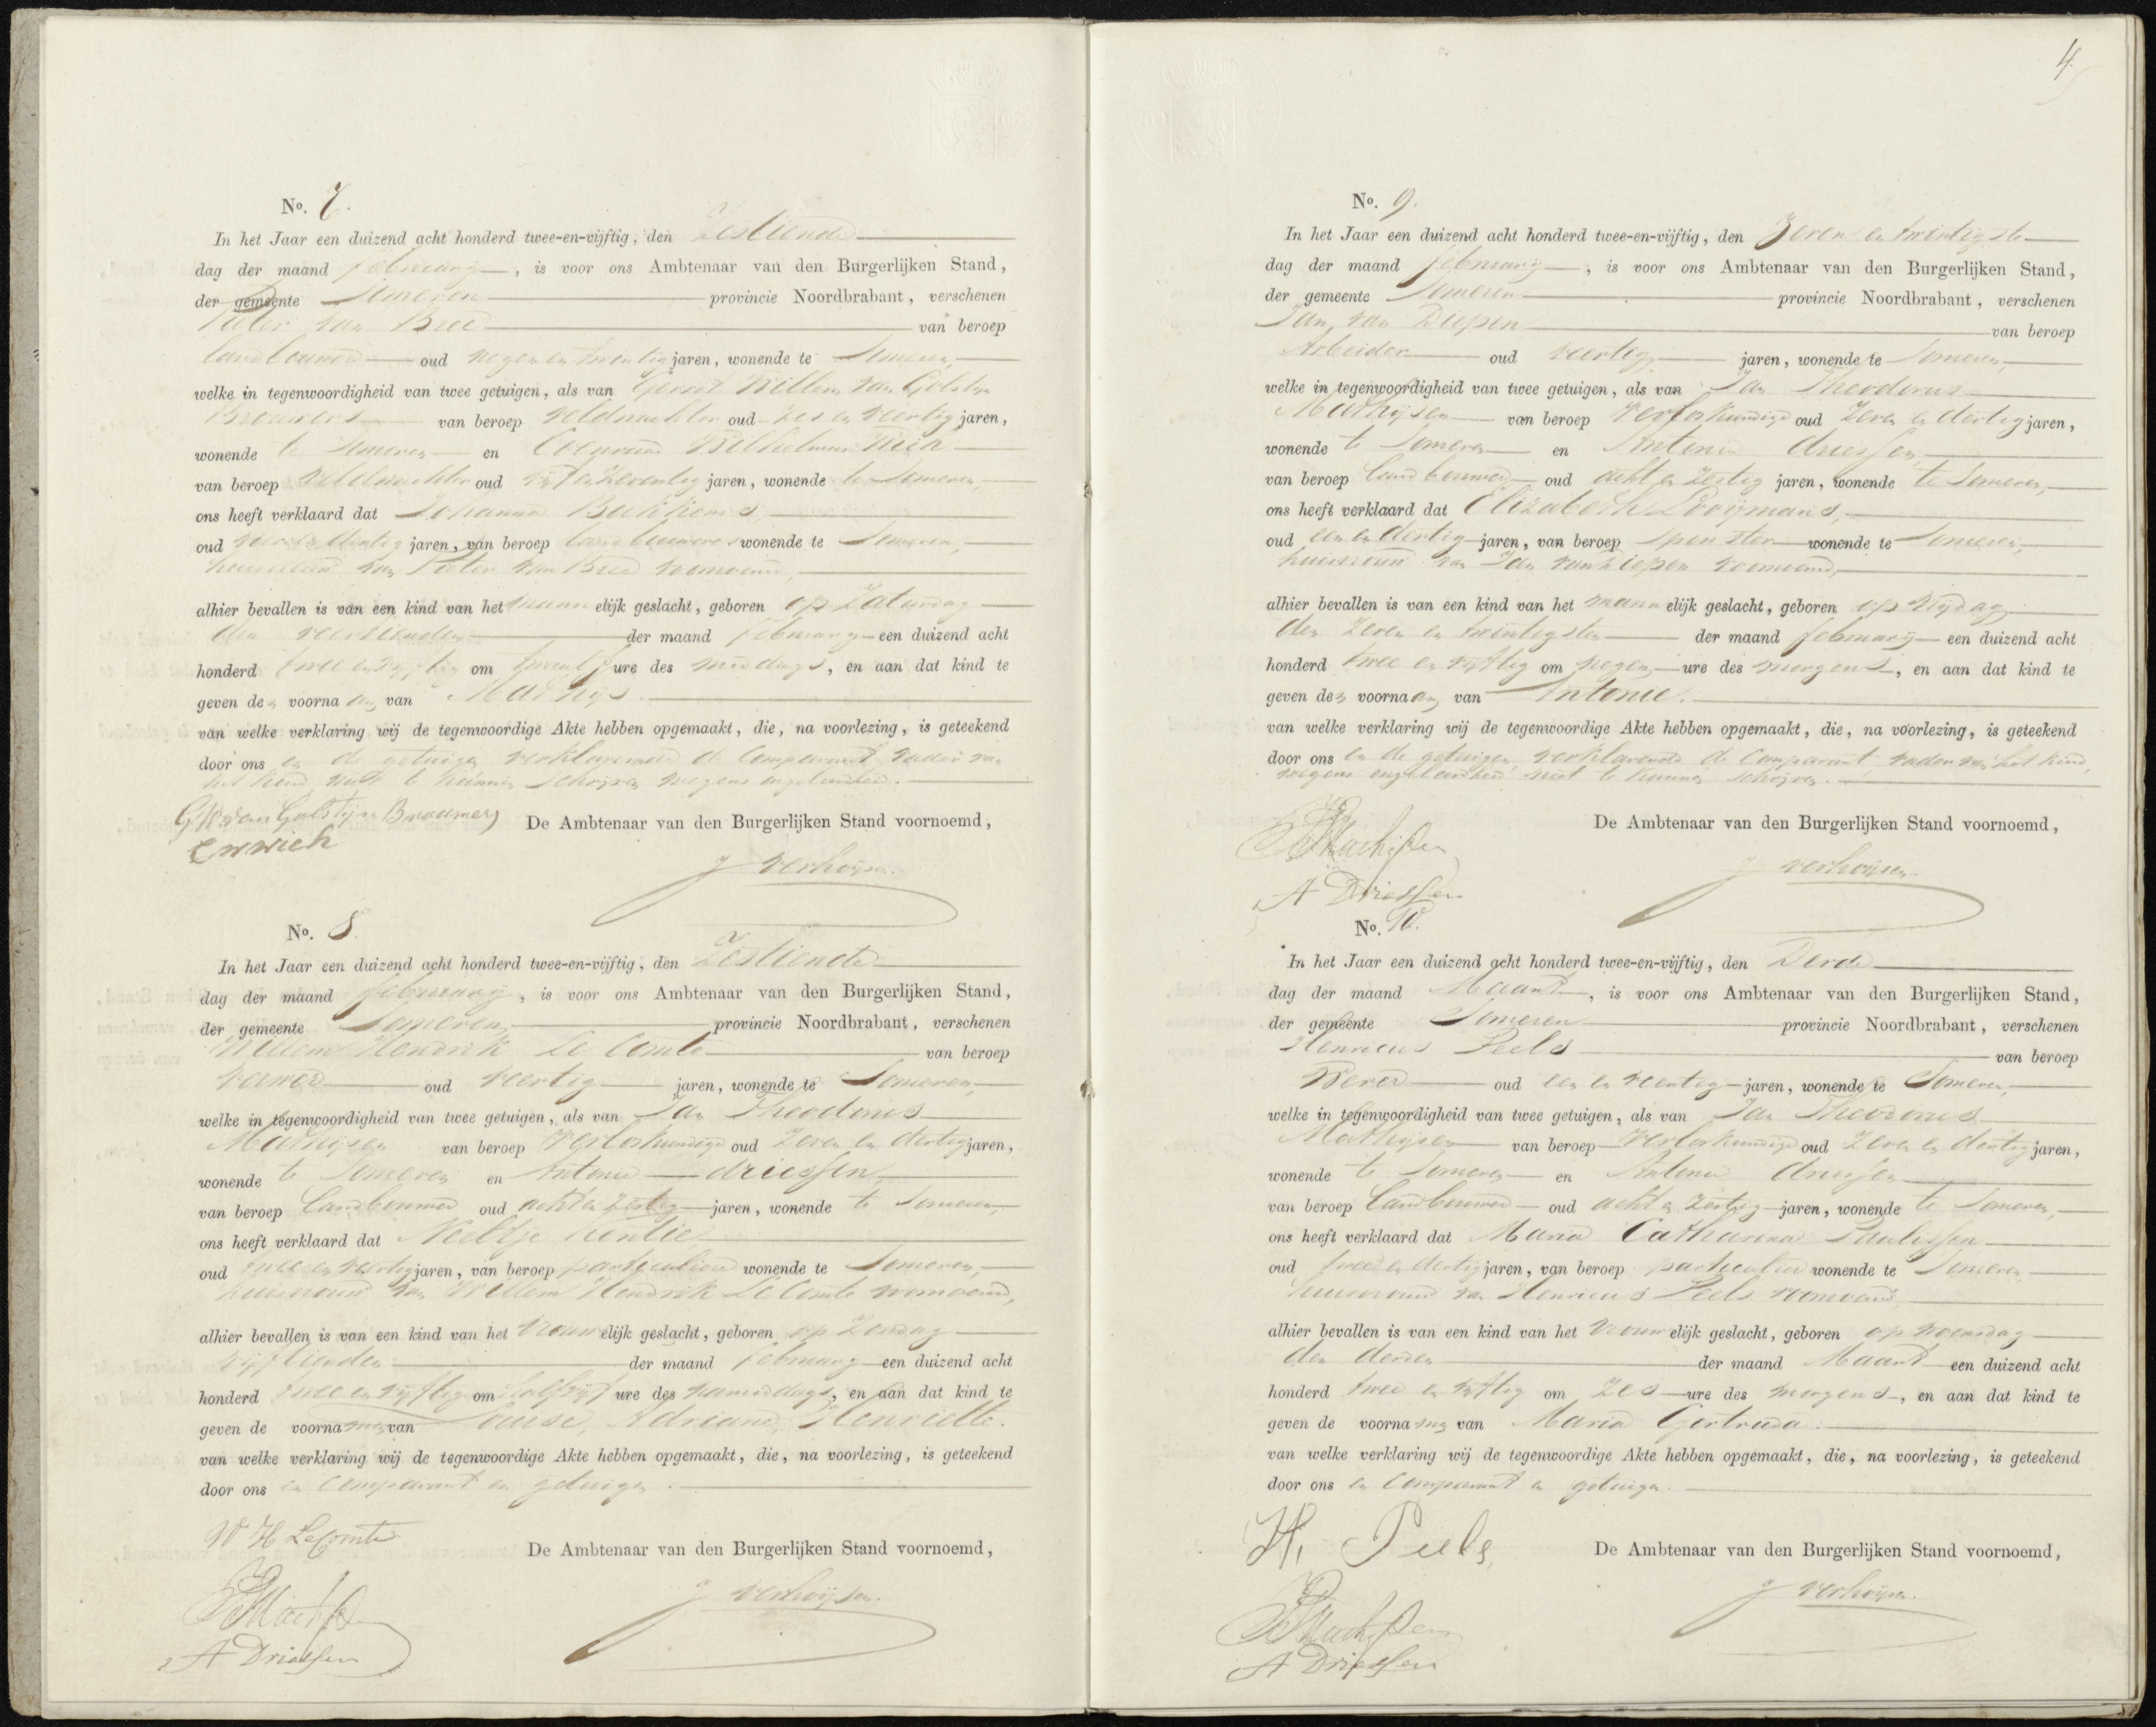 No. 7.
In het Jaar een duizend acht honderd twee-en-vijftig, den Zestiende
dag der maand february, is voor ons Ambtenaar van den Burgerlijken Stand,
der gemeente Someren provincie Noordbrabant, verschenen
Pieter van Bree van beroep
landbouwer oud negen en twintig jaren, wonende te Someren,
welke in tegenwoordigheid van twee getuigen, als van Gerrit Willem van Golstijn
Brouwers van beroep veldwachter oud zes en veertig jaren,
wonende te Someren en Coenraad Wilhelmus Wich
van beroep veldwachter oud vijf en zeventig jaren, wonende te Someren,
ons heeft verklaard dat Johanna
oud vier en dertig jaren, van beroep landbouweres wonende te Someren,
huisvrouw van Pieter van Bree voornoemd,
alhier bevallen is van een kind van het mannelijk geslacht, geboren op Zaturdag
den veertienden der maand february een duizend acht
honderd twee en vijftig om twaalf ure des middags, en aan dat kind te
geven den voornaam van Mathijs.
van welke verklaring wij de tegenwoordige Akte hebben opgemaakt, die, na voorlezing, is geteekend
door ons en de getuigen verklarende de Comparant vader van
het kind niet te kunnen schrijven wegens ongeleerdheid.
G W van Golstijn Brouwers
De Ambtenaar van den Burgerlijken Stand voornoemd,
C W Wich
J Verhoijsen
No. 8
In het Jaar een duizend acht honderd twee-en-vijftig, den Zestiende
dag der maand february, is voor ons Ambtenaar van den Burgerlijken Stand,
der gemeente Someren provincie Noordbrabant, verschenen
Willem Hendrik Le Comte van beroep
verwer oud veertig jaren, wonende te Someren,
welke in tegenwoordigheid van twee getuigen, als van Jan Theodorus
Mathijsen van beroep Verloskundige oud Zeven en dertig jaren,
wonende te Someren en Antonie driessen,
van beroep Landbouwer oud acht en zestig jaren, wonende te Someren,
ons heeft verklaard dat Neeltje
oud twee en veertig jaren, van beroep particuliere wonende te Someren,
huisvrouw van Willem Hendrik Le Comte voornoemd,
alhier bevallen is van een kind van het vrouwelijk geslacht, geboren op Zondag
vijftienden der maand february een duizend acht
honderd twee en vijftig om half vijf ure des namiddags, en aan dat kind te
geven de voornamen van Louise, Adriana, Henriette.
van welke verklaring wij de tegenwoordige Akte hebben opgemaakt, die, na voorlezing, is geteekend
door ons en Comparant en getuigen.
W H LeComte
De Ambtenaar van den Burgerlijken Stand voornoemd,
J Verhoijsen
A Driessen
4
No. 9.
In het Jaar een duizend acht honderd twee-en-vijftig, den Zeven en twintigste
dag der maand february, is voor ons Ambtenaar van den Burgerlijken Stand,
der gemeente Someren provincie Noordbrabant, verschenen
Jan van Diepen van beroep
Arbeider oud veertig jaren, wonende te Someren,
welke in tegenwoordigheid van twee getuigen, als van Jan Theodorus
Mathijsen van beroep Verloskundige oud Zeven en dertig jaren,
wonende te Someren en Antonie driessen,
van beroep landbouwer oud acht en zestig jaren, wonende te Someren,
ons heeft verklaard dat Elizabeth Looijmans,
oud een en dertig jaren, van beroep spinster wonende te Someren,
huisvrouw van Jan van Diepen voornoemd,
alhier bevallen is van een kind van het mannelijk geslacht, geboren op vrijdag
den zeven en twintigsten der maand february een duizend acht
honderd twee en vijftig om negen ure des morgens, en aan dat kind te
geven den voornaam van Antonie.
van welke verklaring wij de tegenwoordige Akte hebben opgemaakt, die, na voorlezing, is geteekend
door ons en de getuigen, verklarende de Comparant, vader van het kind,
wegens ongeleerdheid niet te kunnen schrijven.
De Ambtenaar van den Burgerlijken Stand voornoemd,
J Verhoijsen
A Driessen
No. 10.
In het Jaar een duizend acht honderd twee-en-vijftig, den Derde
dag der maand Maart, is voor ons Ambtenaar van den Burgerlijken Stand,
der gemeente Someren provincie Noordbrabant, verschenen
Henricus Peels van beroep
Wever oud een en veertig jaren, wonende te Someren,
welke in tegenwoordigheid van twee getuigen, als van Jan Theodorus
Mathijsen van beroep Verloskundige oud Zeven en dertig jaren,
wonende te Someren en Antonie driessen
van beroep Landbouwer oud acht en zestig jaren, wonende te Someren,
ons heeft verklaard dat Maria Catharina Paulissen
oud twee en dertig jaren, van beroep particuliere wonende te Someren
huisvrouw van Henricus Peels voornoemd,
alhier bevallen is van een kind van het vrouwelijk geslacht, geboren op woensdag
den derden der maand Maart een duizend acht
honderd twee en vijftig om zes ure des morgens, en aan dat kind te
geven de voornamen van Maria Gertruda.
van welke verklaring wij de tegenwoordige Akte hebben opgemaakt, die, na voorlezing, is geteekend
door ons en Comparant en getuigen.
H. Peels,
De Ambtenaar van den Burgerlijken Stand voornoemd,
J Verhoijsen
A Driessen